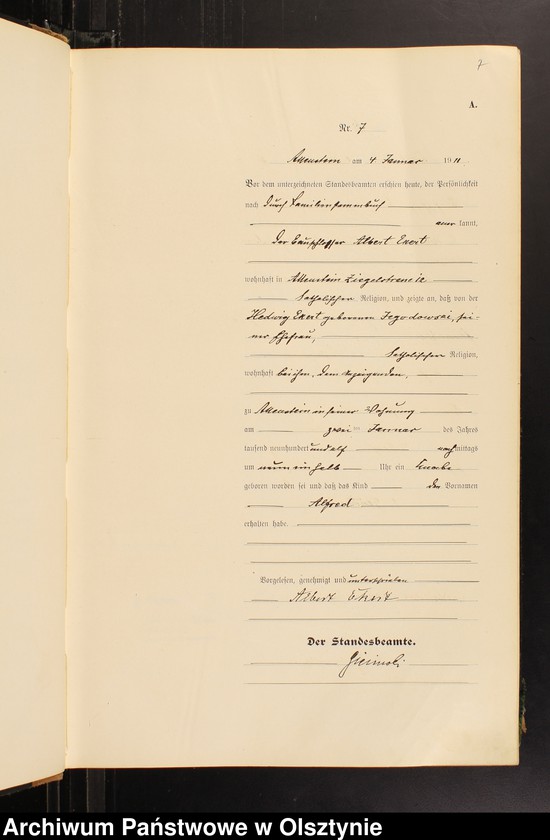 7
A.
Nr. 7
Allenstein am 4 Januar 1911
Vor dem unterzeichneten Standesbeamten erschien heute, der Persönlichkeit
nach durch Familienstammbuch
aner kannt,
der Bauschlosser Albert Ekert
wohnhaft in Allenstein
katholischer Religion, und zeigte an, daß von der
Hedwig Ekert geborenen Jegodowski, sei-
ner Ehefrau,
katholischer Religion,
wohnhaft bei ihm, dem Anzeigenden,
zu Allenstein in seiner Wohnung
am zwei ten Januar des Jahres
tausend neunhundert und elf nachmittags
um neuneinhalb Uhr ein Knabe
geboren worden sei und daß das Kind den Vornamen
Alfred
erhalten habe.
Vorgelesen, genehmigt und unterschrieben
Albert Ekert
Der Standesbeamte.
Archiwum Państwowe w Olsztynie